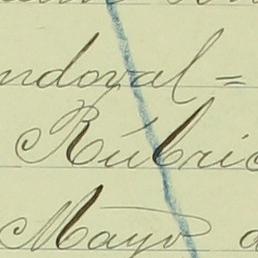 ndoval=
Rúbric
Mayo d